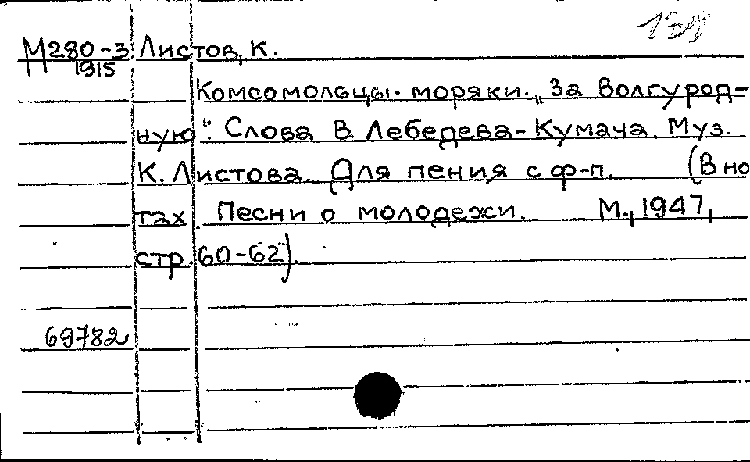 М280-3 Листов, К.
1915
Комсомольцы-моряки. „За Волгу род-
ную". Слова В. Лебедева-Кумача. Муз.
К. Листова. Для пения с ф-п. (В но
тах Песни о молодежи. М., 1947,
стр. 60-62).
69782